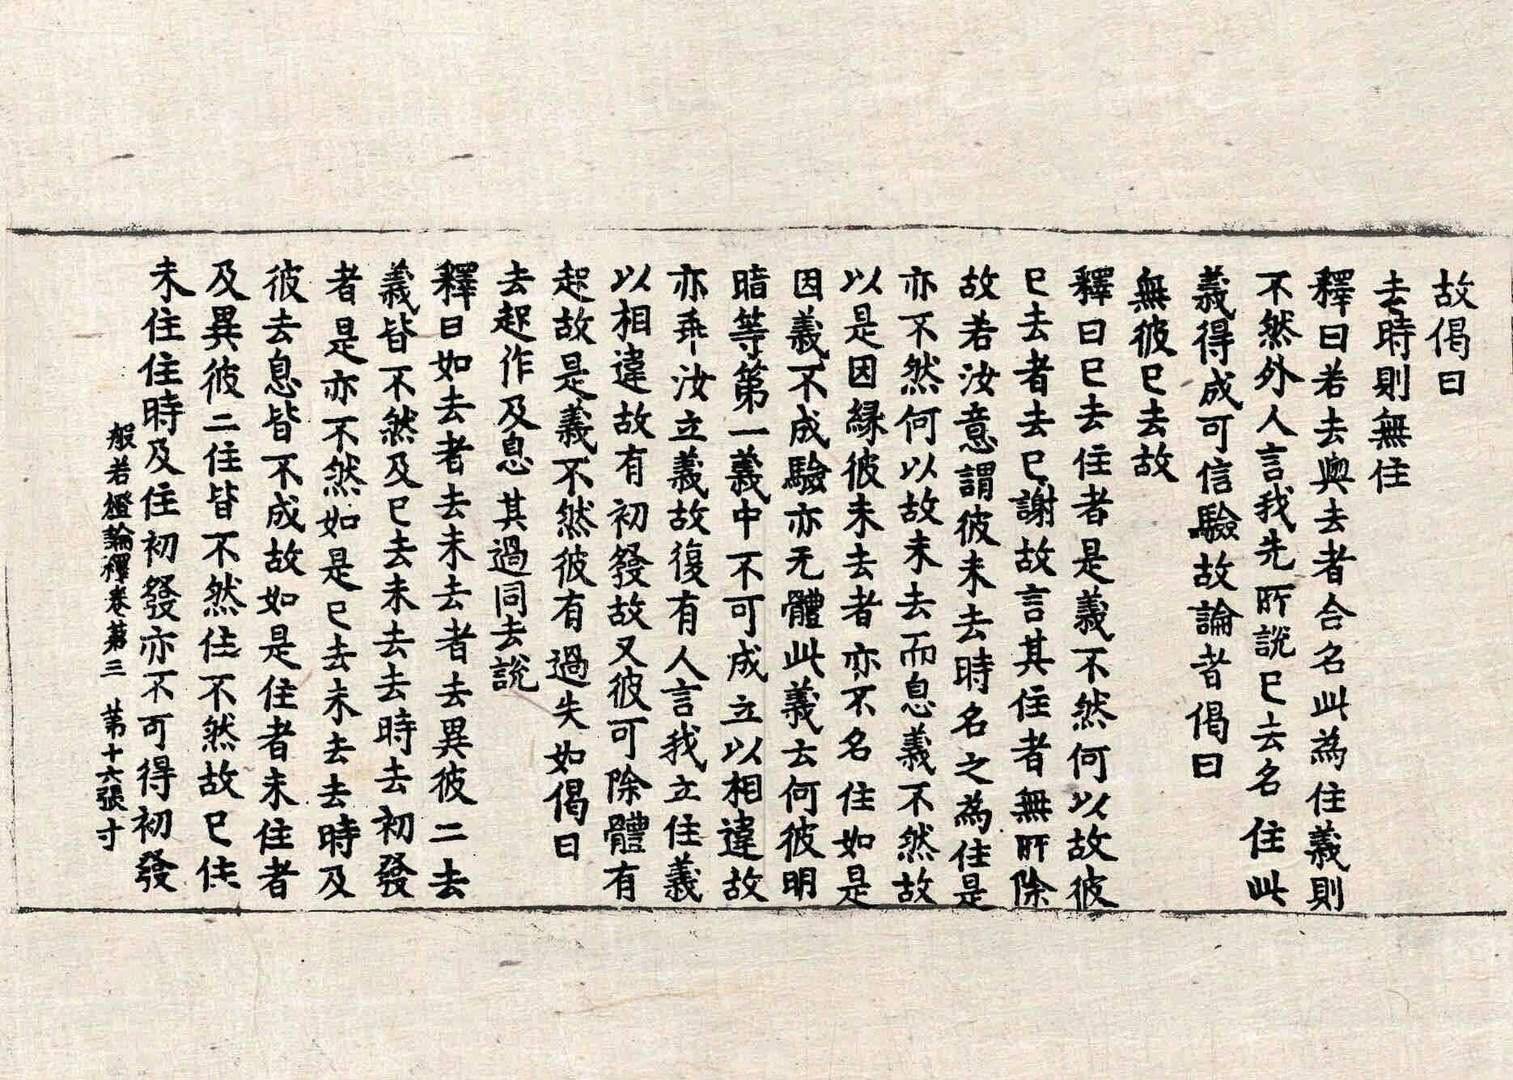 故偈曰
去時則無住
釋曰若去與去者合名此為住義則
不然外人言我先所說已去名住此
義得成可信驗故論者偈曰
無彼已去故
釋曰已去住者是義不然何以故彼
已去者去已謝故言其住者無所除
故若汝意謂彼未去時名之為住是
亦不然何以故未去而息義不然故
以是因緣彼未去者亦不名住如是
因義不成驗亦无體此義云何彼明
暗等第一義中不可成立以相違故
亦乖汝立義故復有人言我立住義
以相違故有初發故又彼可除體有
起故是義不然彼有過失如偈曰
去起作及息其過同去說
釋曰如去者去未去者去異彼二去
義皆不然及已去未去去時去初發
者是亦不然如是已去未去去時及
彼去息皆不成故如是住者未住者
及異彼二住皆不然住不然故已住
未住住時及住初發亦不可得初發
般若燈論釋卷第三 第十六張 寸